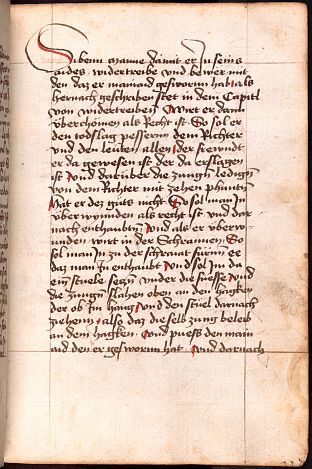 Siben manne damit er In seins
aides widertreibe vnd bewer mit
den daz er mainaid gesworn hab als
hernach geschriben stet in dem Capitl
von vndertreiben Wirt er dann
vberchomen als Recht ist So sol er
den todslag pessern dem Richter
vnd den leuten allen der frewndt
er da gewesen ist der da erslagen
ist Vnd darüber die zungen ledigen
von dem Richter mit zehen phunten
Hat er dez guts nicht So sol man In
vber wynnden als recht ist vnd dar
nach enthaubtn vnd als er vberw
unden wirt in der Schrannen So
sol man In zu der schraat fürnn ee
daz man In enthaubt Vnd sol In da
ein stuele setzn vnder die füesse Vnd
die zungen slahen oben an den hagken
der ob Im hang Vnd den stuel darnach
ziehenn also daz die selb zung beleib
an dem hagken Vnd puess den main
aid den er gesworn hat Vnd darnach